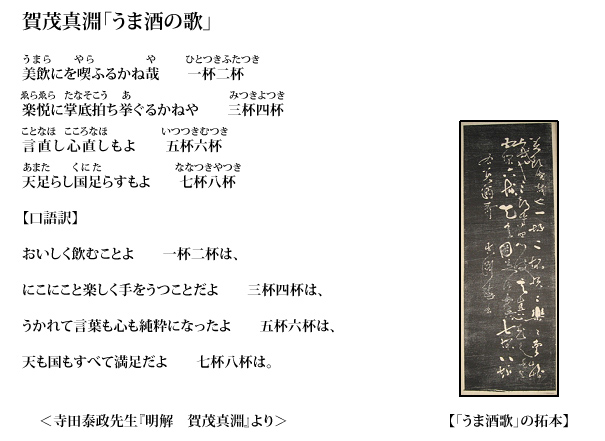 賀茂真淵「うま酒の歌」
うまら やら や ひとつきふたつき
美飲にを喫ふるかね哉 一杯二杯
ゑらゑら たなそこう あ みつきよつき
楽悦に掌底拍ち挙ぐるかねや 三杯四杯
ことなほ こころなほ いつつきむつき
言直し心直しもよ 五杯六杯
あまた くにた ななつきやつき
天足らし国足らすもよ 七杯八杯
【口語訳】
おいしく飲むことよ 一杯二杯は、
にこにこと楽しく手をうつことだよ 三杯四杯は、
うかれて言葉も心も純粋になったよ 五杯六杯は、
天も国もすべて満足だよ 七杯八杯は。
＜寺田泰政先生『明解 賀茂真淵』より＞
【「うま酒歌」の拓本】